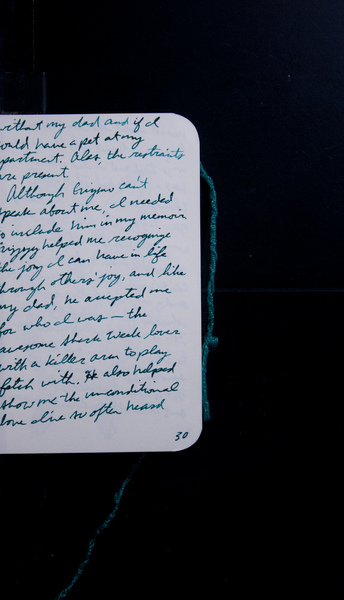 without my dad and if I
could have a pet at my
apartment. Also, the restraints
are present.
Although Grizno can't
speak about me, I needed
to include him in my memoir
Grizzy helped me recognize
the joy I can have in life
through others' joy, and like
my dad, he accepted me
for who I was — the
awesome shark week lover
with a killer arm to play
fetch with. He also helped
show me the unconditional
love I've so often heard
30